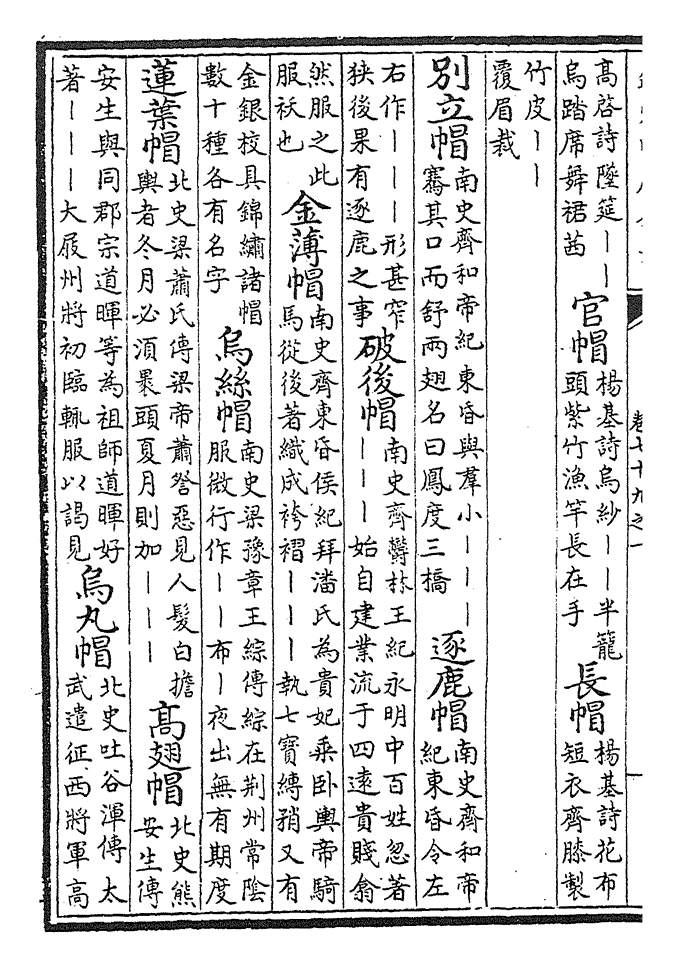 卷七十九之一
高啓詩墜筵丨丨
烏踏席舞裙茜
官帽
楊基詩烏紗丨丨半籠
頭紫竹漁竿長在手
長帽
楊基詩花布
短衣齊膝製
竹皮丨丨
覆眉裁
別立帽
南史齊和帝紀東昏與羣小丨丨丨
騫其口而舒兩翅名曰鳳度三橋
逐鹿帽
南史齊和帝
紀東昏令左
右作丨丨丨形甚窄
狹後果有逐鹿之事
破後帽
南史齊鬱林王紀永明中百姓忽著
丨丨丨始自建業流于四遠貴賤翕
然服之此
服袄也
金薄帽
南史齊東昏侯紀拜潘氏為貴妃乘卧輿帝騎
馬從後著織成袴褶丨丨丨執七寶縳矟又有
金銀校具錦繡諸帽
數十種各有名字
烏絲帽
南史梁豫章王綜傳綜在荆州常陰
服微行作丨丨布丨夜出無有期度
蓮葉帽
北史梁蕭氏傳梁帝蕭詧惡見人髮白擔
輿者冬月必須裹頭夏月則加丨丨丨
高翅帽
北史熊
安生傳
安生與同郡宗道暉等為祖師道暉好
著丨丨丨大屐州將初臨輒服以謁見
烏丸帽
北史吐谷渾傳太
武遣征西將軍高